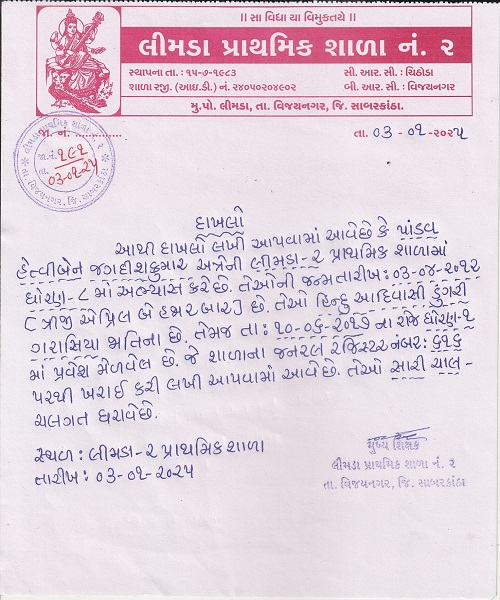 ।। સા વિદ્યા યા વિમુક્તયે ।।
લીમડા પ્રાથમિક શાળા નં. ૨
સ્થાપના તા. : ૧૫-૭-૧૯૮૩ સી. આર. સી. : ચિઠોડા
શાળા રજી. (આઇ.ડી.) નં. ૨૪૦૫૦૨૦૪૯૦૨ બી. આર. સી. : વિજયનગર
મુ.પો. લીમડા, તા. વિજયનગર, જિ. સાબરકાંઠા.
જા. નં. .............. તા. ૦૩ - ૦૧ -૨૦૨૫
લીમડા પ્રાથમિક શાળા નં. ૨
જા.નં. ૧૯૧
૦૩-૦૧-૨૫
તા. વિજયનગર, જિ. સાબરકાંઠા
દાખલો
આથી દાખલો લખી આપવામાં આવેછે કે પાંડવ
હેત્વીબેન જગદીશકુમાર અત્રેની લીમડા-૨ પ્રાથમિક શાળામાં
ધોરણ-૮ માં અભ્યાસ કરેછે. તેઓની જન્મતારીખ: ૦૩-૦૪-૨૦૧૨
[ ત્રીજી એપ્રિલ બે હજાર બાર ] છે. તેઓ હિન્દુ આદિવાસી ડુંગરી
ગરાસિયા જાતિના છે. તેમજ તા: ૧૦-૦૬-૨૦૧૭ ના રોજ ધોરણ-૧
માં પ્રવેશ મેળવેલ છે. જે શાળાના જનરલ રજિસ્ટર નંબર: ૬૧૬
પરથી ખરાઈ કરી લખી આપવામાં આવે છે. તેઓ સારી ચાલ-
ચલગત ધરાવેછે.
સ્થળ: લીમડા-૨ પ્રાથમિક શાળા
તારીખ: ૦૩-૦૧-૨૦૨૫
મુખ્ય શિક્ષક
લીમડા પ્રાથમિક શાળા નં. ૨
તા. વિજયનગર, જિ. સાબરકાંઠા